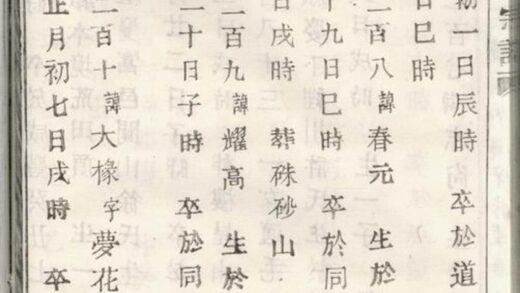 宗譜
初一日辰時 卒於道
日巳時
二百八諱春元 生於
十九日巳時 卒於同
日戌時 葬硃砂山
二百九諱耀高 生於
二十日子時 卒於同
二百十諱大椽字夢花
正月初七日戌時 卒